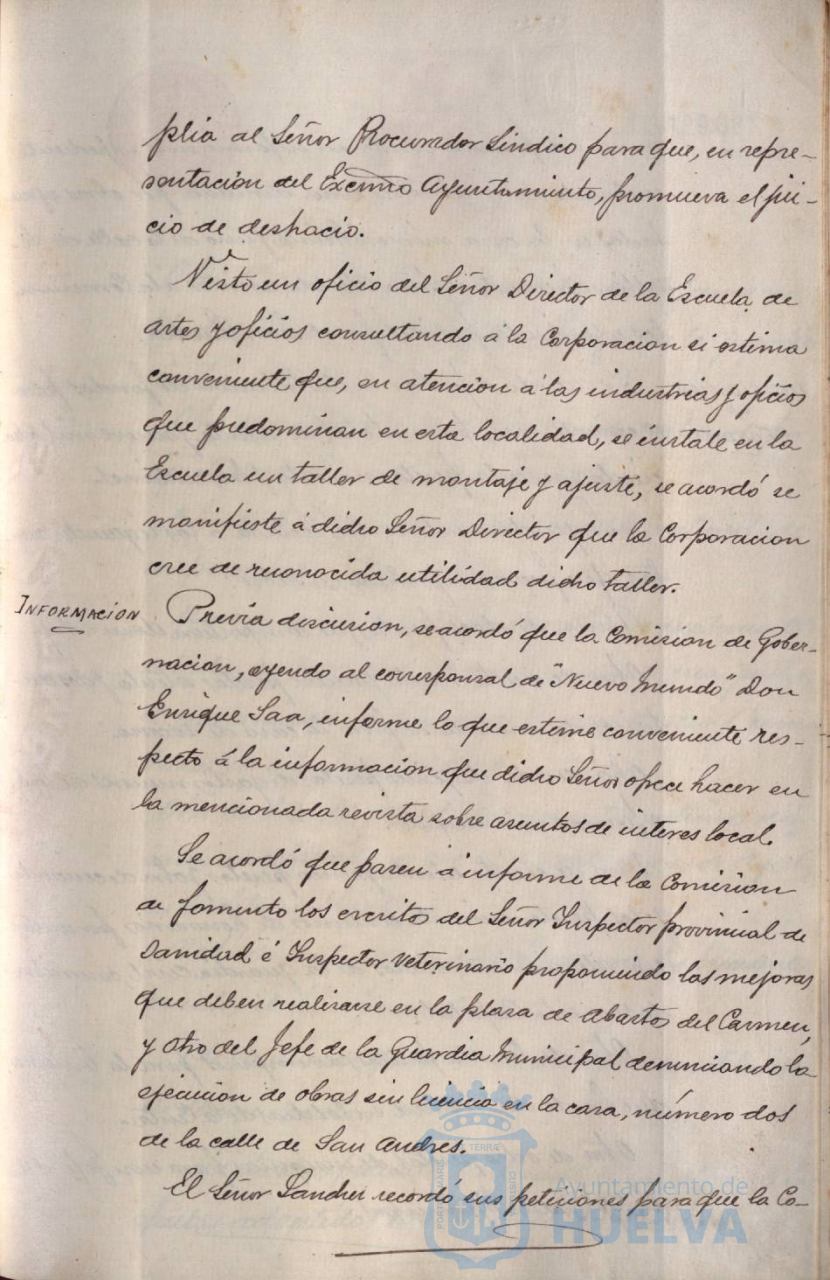 plia al Señor Procurador Sindico para que, en repre-
sentación del Excmo Ayuntamiento, promueva el jui-
cio de deshacio.
Visto un oficio del Señor Director de la Escuela de
artes y oficios consultando á la Corporacion si estima
conveniente que, en atencion á las industrias y oficios
que predominan en esta localidad, se instale en la
Escuela un taller de montaje y ajuste, se acordó se
manifieste á dicho Señor Director que la Corporacion
cree de reconocida utilidad dicho taller.
INFORMACION
Previa discusion, se acordó que la Comision de Gober-
nacion, oyendo al corresponsal de "Nuevo Mundo" Don
Enrique Saa, informe lo que estime conveniente res-
pecto á la informacion que dicho Señor ofrece hacer en
la mencionada revista sobre asuntos de interes local.
Se acordó que pasen á informe de la Comision
de fomento los escritos del Señor Inspector provincial de
Sanidad é Inspector Veterinario proponiendo las mejoras
que deben realizarse en la plaza de Abastos del Carmen,
y otro del Jefe de la Guardia Municipal denunciando la
ejecucion de obras sin licencia en la casa, número dos
de la calle de San Andres.
El Señor Sanchez recordó sus peticiones para que la Co-
Ayuntamiento de
HUELVA